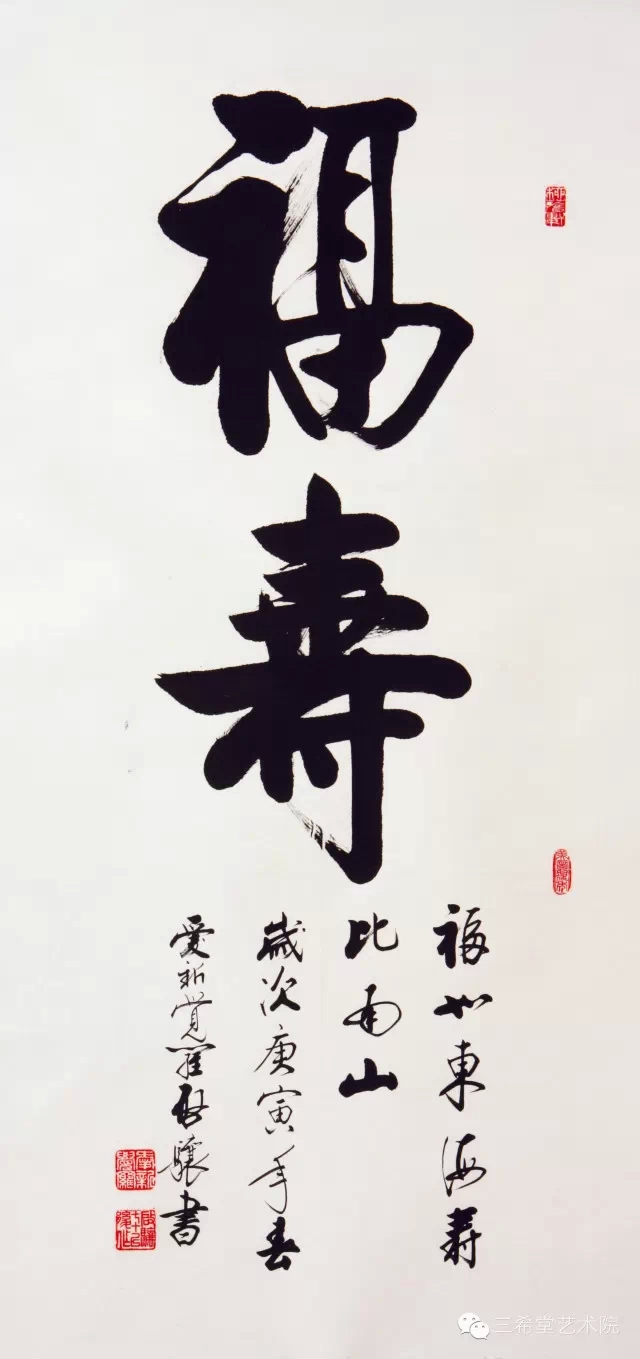 福
壽
福如東海壽
比南山
歲次庚寅年春
愛新覺羅啟驤書
三希堂艺术院